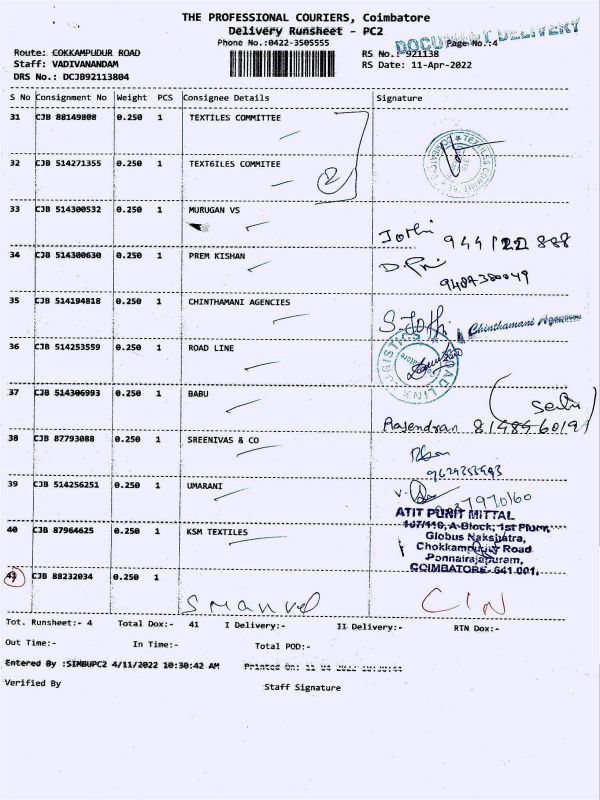 THE PROFESSIONAL COURIERS, Coimbatore
Delivery Runsheet - PC2
Phone No.:0422-3505555
DOCUMENT DELIVERY
Page No.:4
Route: COKKAMPUDUR ROAD
RS No.: 921138
Staff: VADIVANANDAM
RS Date: 11-Apr-2022
DRS No.: DCJB92113804
S No Consignment No Weight PCS Consignee Details Signature
31 CJB 88149808 0.250 1 TEXTILES COMMITTEE
32 CJB 514271355 0.250 1 TEXT6ILES COMMITEE
2
33 CJB 514300532 0.250 1 MURUGAN VS
Jothi
34 CJB 514300630 0.250 1 PREM KISHAN
9487380049
35 CJB 514194818 0.250 1 CHINTHAMANI AGENCIES
S. Jothi Chinthamani Agencies
36 CJB 514253559 0.250 1 ROAD LINE
37 CJB 514306993 0.250 1 BABU
Rajendran 8148460191
38 CJB 87793088 0.250 1 SREENIVAS & CO
39 CJB 514256251 0.250 1 UMARANI
ATIT PUNIT MITTAL
107/110, A-Block, 1st Floor,
40 CJB 87964625 0.250 1 KSM TEXTILES
Globus Nakshatra,
Chokkampudur Road
Ponnairajapuram,
COIMBATORE- 641 001.
CJB 88232034 0.250 1
S Manvel
Tot. Runsheet:- 4 Total Dox:- 41 I Delivery:- II Delivery:- RTN Dox:-
Out Time:- In Time:- Total POD:-
Entered By :SIMBUPC2 4/11/2022 10:30:42 AM Printed On:
Verified By Staff Signature